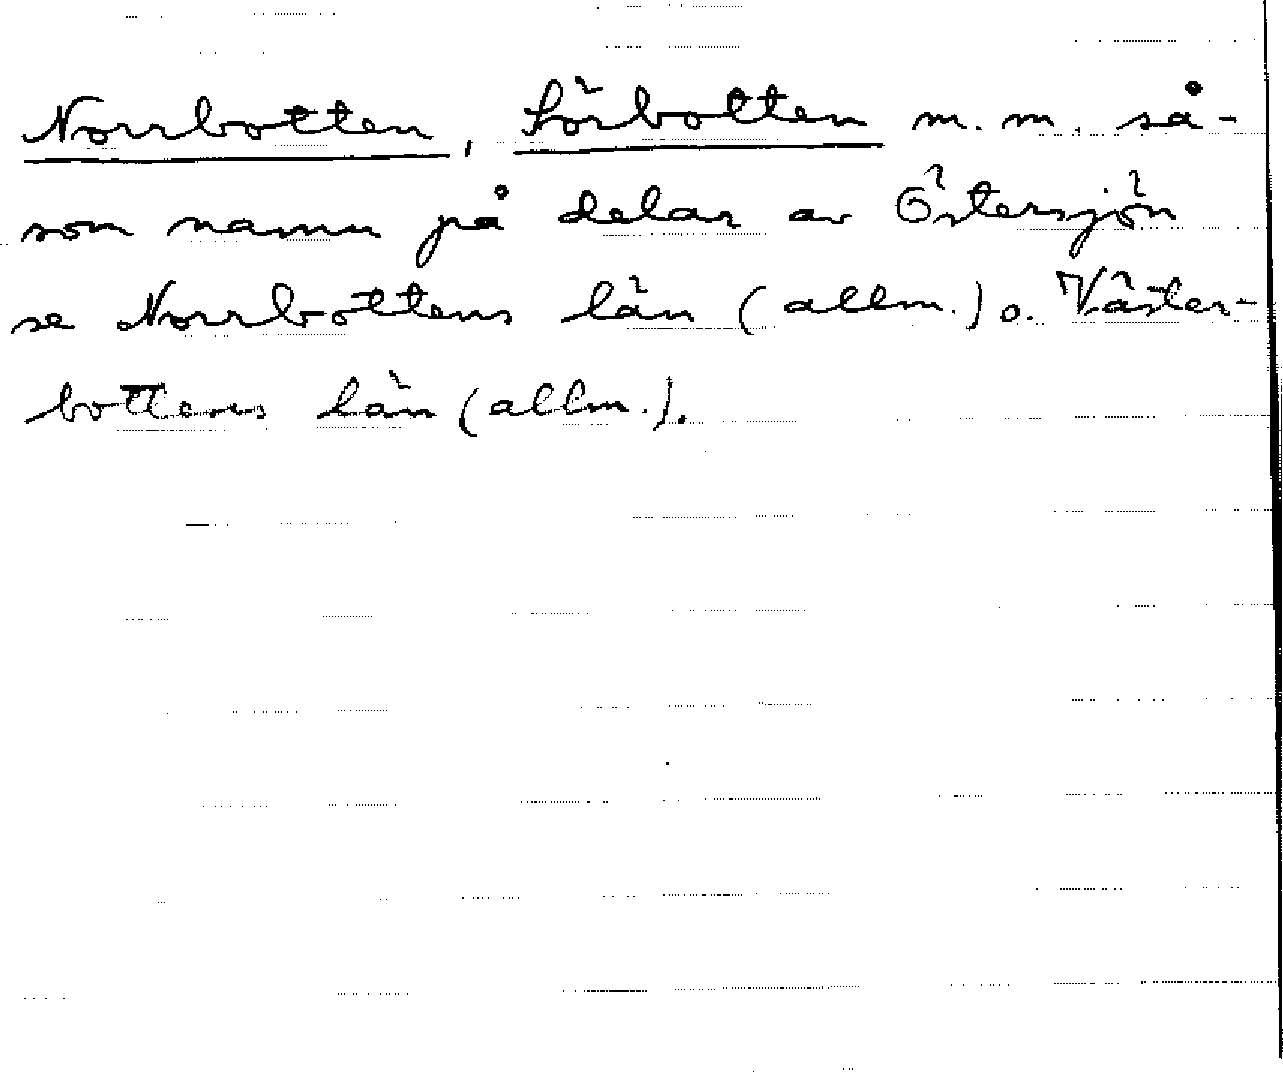 Norrbotten, Sörbotten m.m. så-
som namn på delar av Östersjön
se Norrbottens län (allm.) o. Väster-
bottens län (allm.).